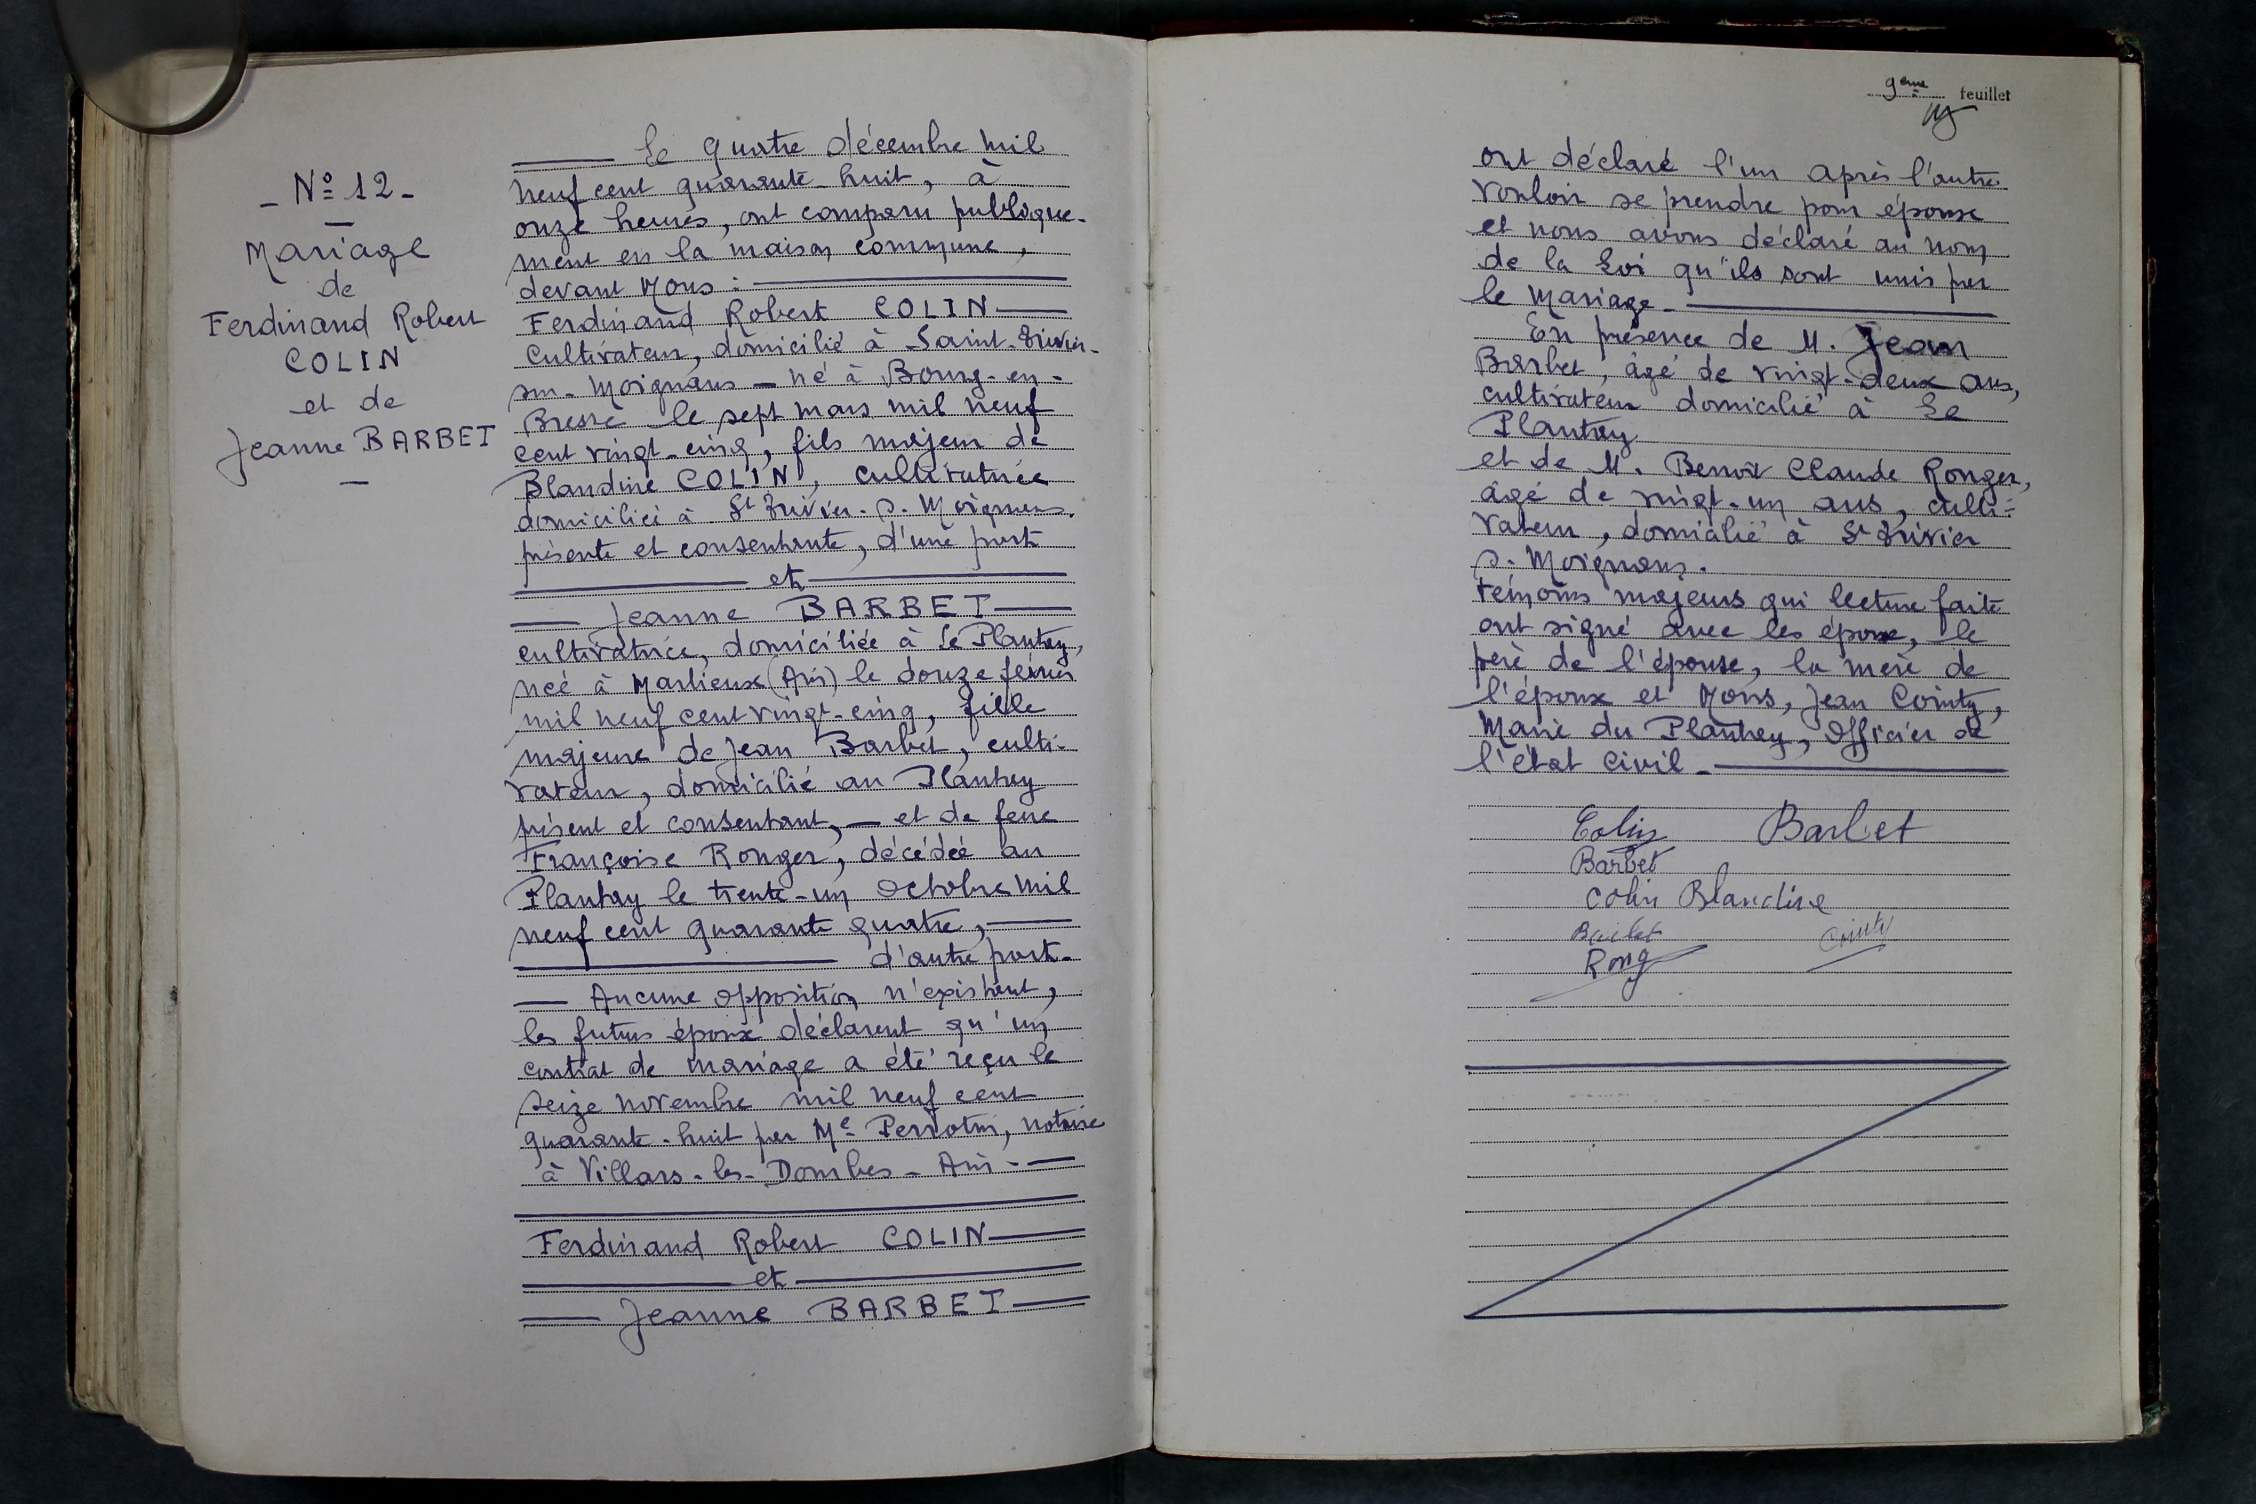 - Nº 12 -
Mariage
de
Ferdinand Robert
COLIN
et de
Jeanne BARBET
Le quatre décembre mil
neuf cent quarante-huit, à
onze heures, ont comparu publique-
ment en la maison commune,
devant Nous :
Ferdinand Robert COLIN
cultivateur, domicilié à Saint-Trivier-
sur-Moignans - né à Bourg-en-
Bresse le sept mars mil neuf
cent vingt-cinq, fils majeur de
Blandine COLIN, cultivatrice
domiciliée à St Trivier-s-Moignans.
présente et consentante, d'une part
et
Jeanne BARBET
cultivatrice, domiciliée à Le Plantay,
née à Marlieux (Ain) le douze février
mil neuf cent vingt-cinq, fille
majeure de Jean Barbet, culti-
vateur, domicilié au Plantay
présent et consentant, - et de feue
Françoise Ronger, décédée au
Plantay le trente-un octobre mil
neuf cent quarante quatre,
d'autre part.
Aucune opposition n'existant,
les futurs époux déclarent qu'un
contrat de mariage a été reçu le
seize novembre mil neuf cent
quarante-huit par Me Perrotin, notaire
à Villars-les-Dombes - Ain -
Ferdinand Robert COLIN
et
Jeanne BARBET
9eme feuillet
ont déclaré l'un après l'autre
vouloir se prendre pour époux
et nous avons déclaré au nom
de la Loi qu'ils sont unis par
le Mariage.
En présence de M. Jean
Barbet, âgé de vingt-deux ans,
cultivateur domicilié à Le
Plantay
et de M. Benoît Claude Ronger,
âgé de vingt-un ans, culti-
vateur, domicilié à St Trivier
s. Moignans.
témoins majeurs qui lecture faite
ont signé avec les époux, le
père de l'épouse, la mère de
l'époux et Nous, Jean Cointy,
Maire du Plantay, Officier de
l'état civil.
Colin Barbet
Barbet
Colin Blandine
Barbet Cointy
Rong